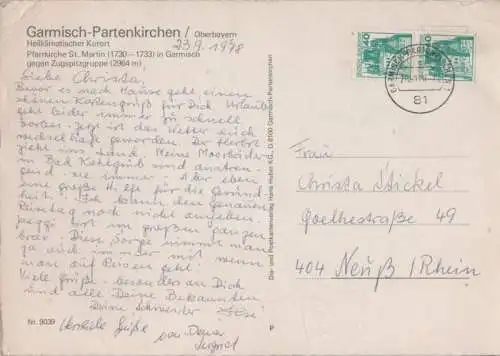 Garmisch-Partenkirchen / Oberbayern
Heilklimatischer Kurort 23.9.1978
Pfarrkirche St. Martin (1730–1733) in Garmisch
gegen Zugspitzgruppe (2964 m)
Liebe Christa!
Bevor es nach Hause geht einen
schönen Kartengruß für Dich. Urlaub
geht leider immer zu schnell
vorbei. Jetzt ist das Wetter auch
wechselhafter geworden. Der Herbst
zieht ins Land. Meine Moorbäder
in Bad Kohlgrub sind anstren-
gend wie immer. Aber eben
eine große Hilfe für die Gesund-
heit. Ich kann den genauen
noch nicht angeben.
ist im großen ganzen
brav. Diese Sorge nimmt man
ja auch immer mit wenn
man auf Reisen geht.
Viele Grüße besonders an Dich
und alle Deine Bekannten.
Deine
Herzliche Grüße von Deiner
Nr. 9039
Die- und Postkartenverlag Hans Huber KG., D 8100 Garmisch-Partenkirchen
P
40
40
GARMISCH-PARTENKIRCHEN
81
Frau
Christa Stickel
Goethestraße 49
404 Neuß/Rhein